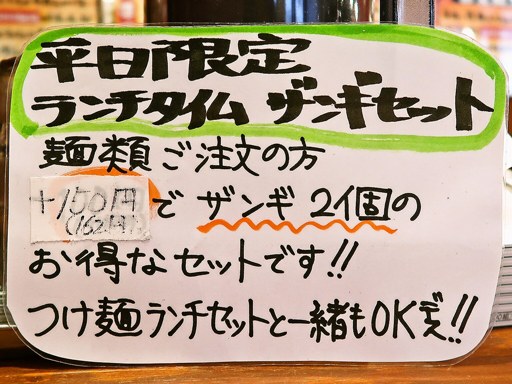 平日限定
ランチタイム ザンギセット
麺類ご注文の方
+150円で ザンギ 2個の
(162円)
お得なセットです!!
つけ麺ランチセットと一緒もOKだえ!!